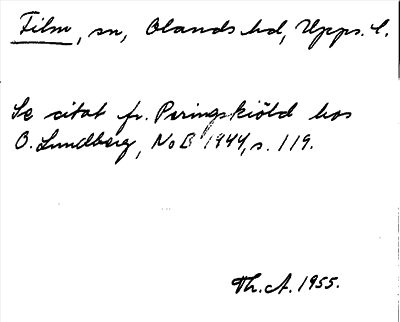 Film, sn, Olands hd, Upps. l.
Se citat fr. Peringskiöld hos
O. Lundberg, NoB 1944, s. 119.
Th. A. 1955.